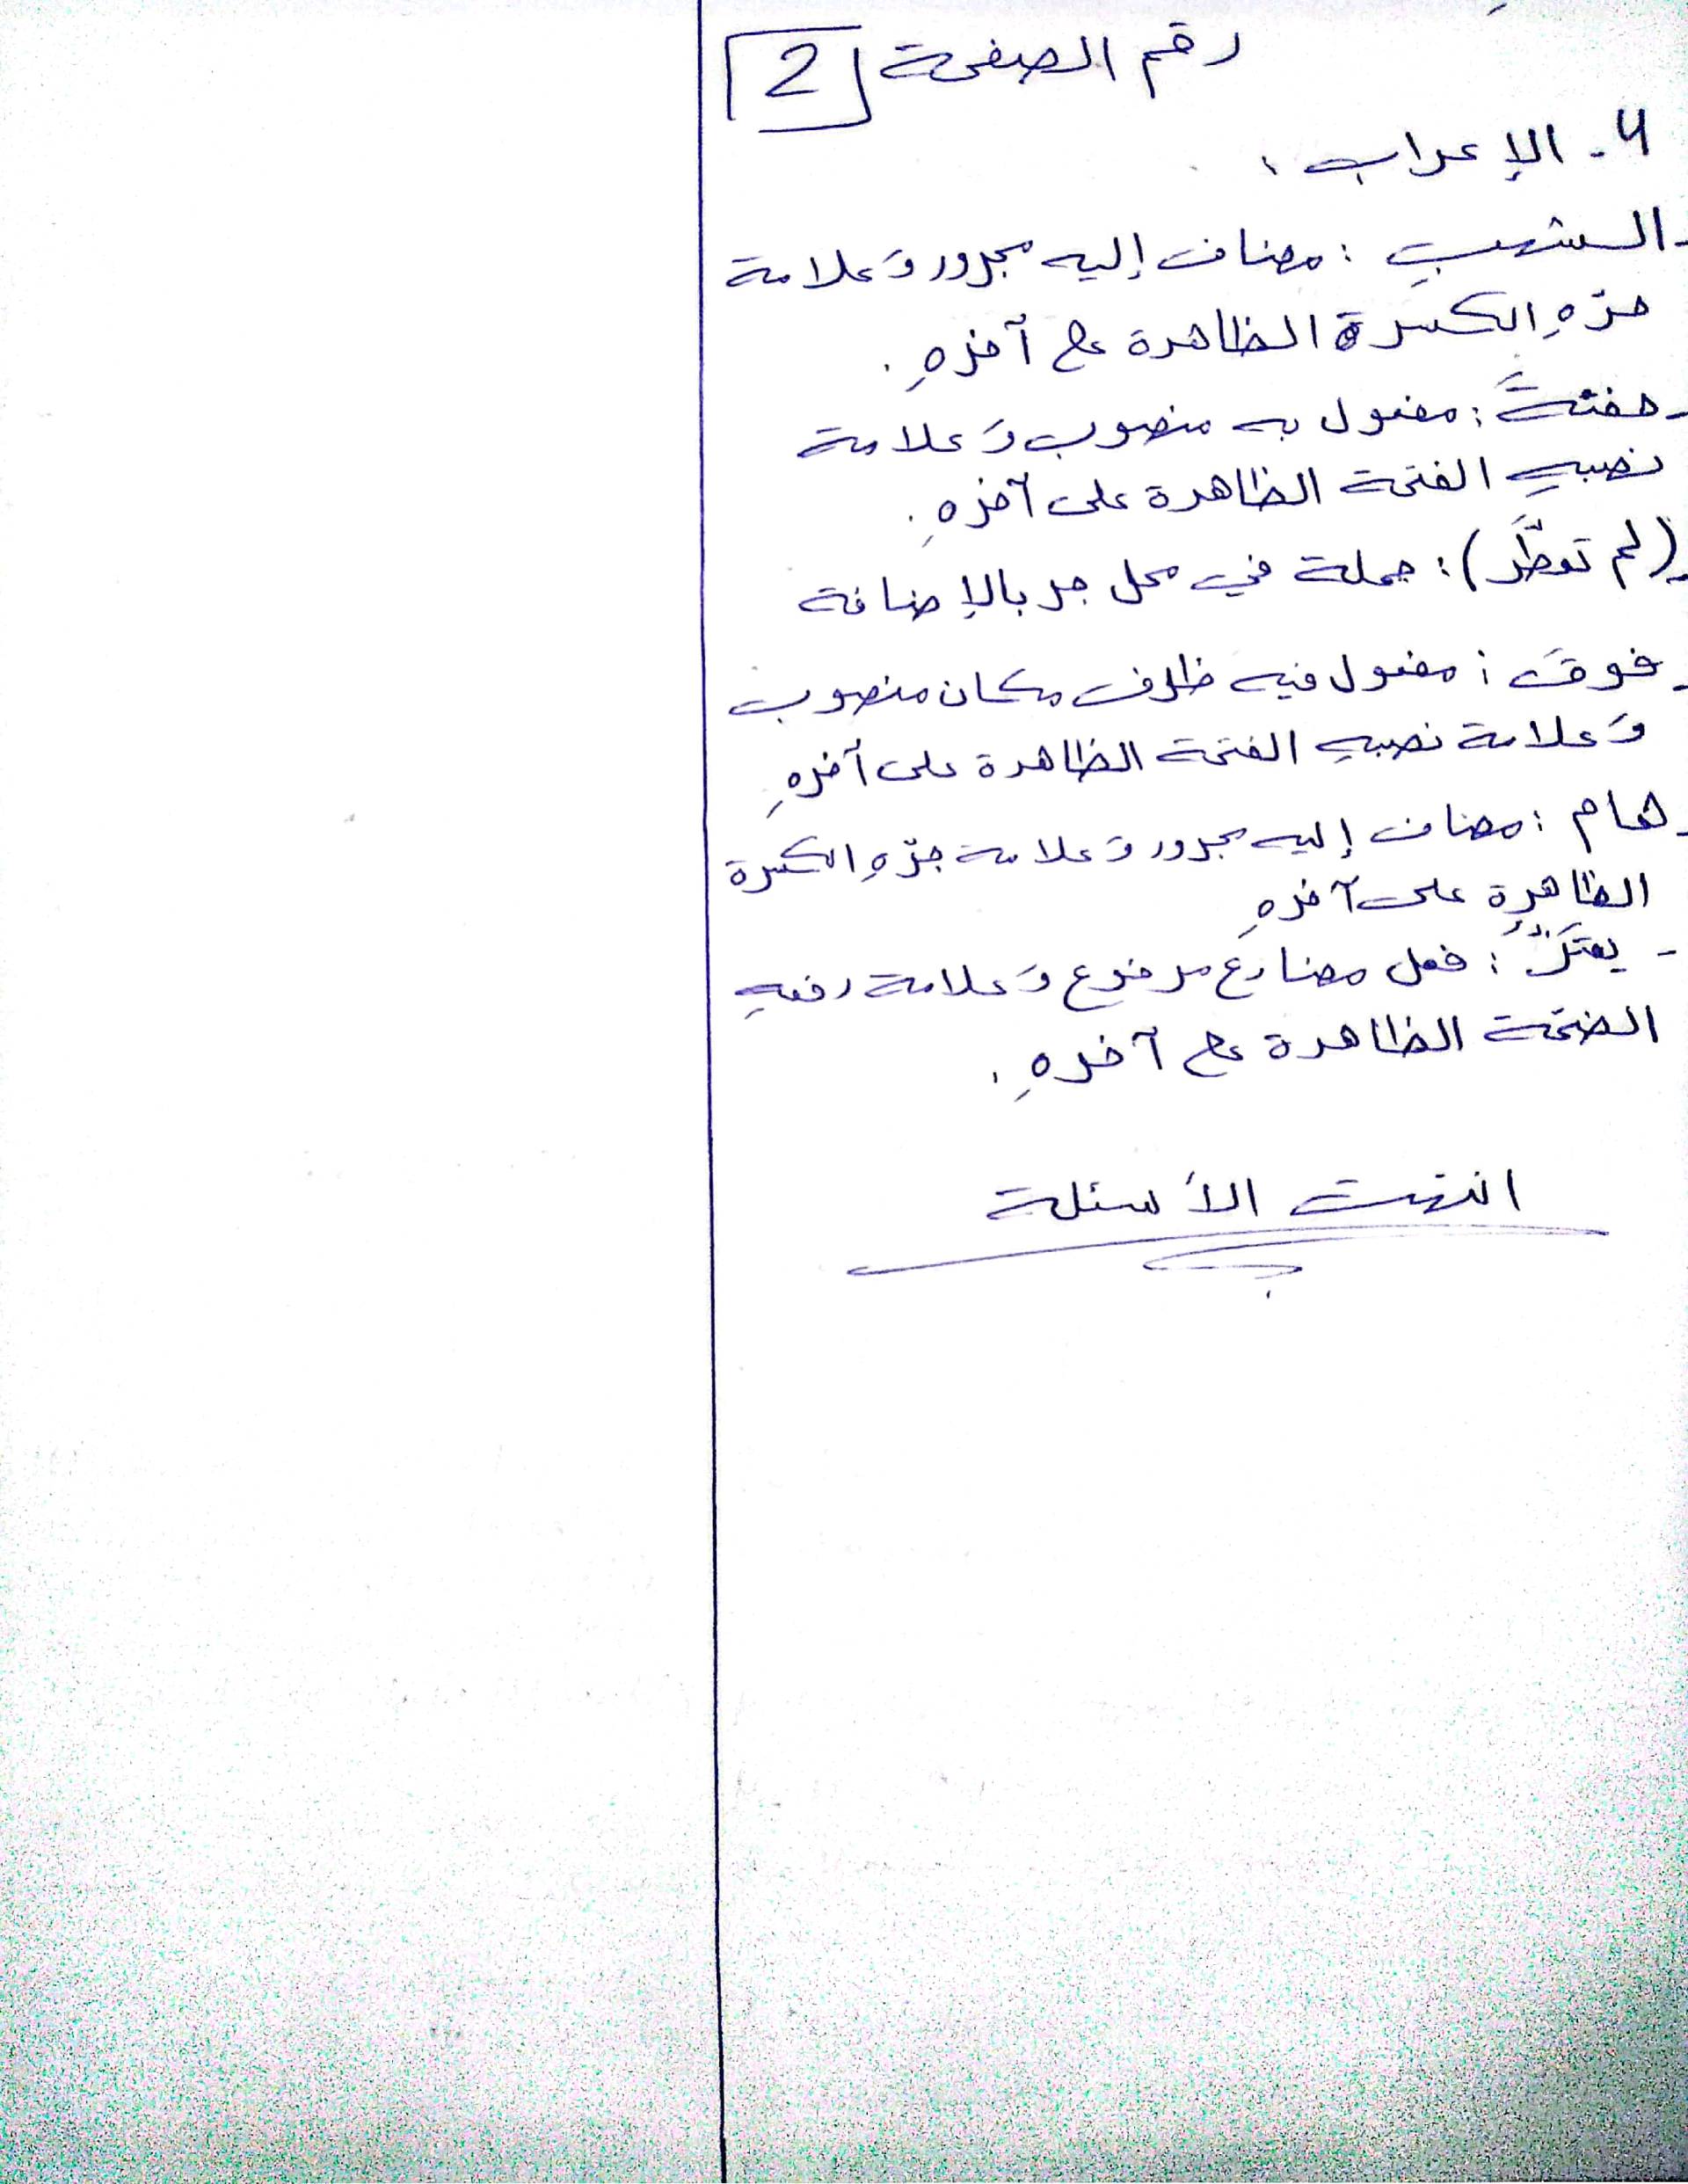 رقم الصفحة 2
4 ـ الإعراب :
ـ الشهبِ : مضاف إليه مجرور وَعلامة
جرّهِ الكسرة الظاهرة على آخرهِ .
ـ حفنةً : مفعول به منصوب وَعلامة
نصبهِ الفتحة الظاهرة على آخرهِ .
ـ (لم تعطَّر) : جملة في محل جر بالإضافة
ـ فوقَ : مفعول فيه ظرف مكان منصوب
وَعلامة نصبهِ الفتحة الظاهرة على آخرهِ
ـ هام : مضاف إليه مجرور وَعلامة جرّهِ الكسرة
الظاهرة على آخرهِ
ـ يهتزُّ : فعل مضارع مرفوع وَعلامة رفعهِ
الضمّة الظاهرة على آخرهِ .
انتهت الأسئلة